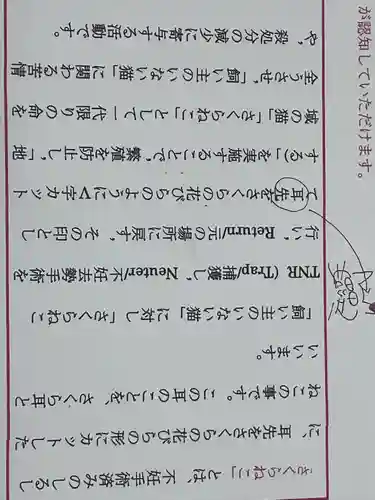 「さくらねこ」とは、不妊手術済みのしるし
に、耳先をさくらの花びらの形にカットした
ねこの事です。この耳のことを、さくら耳と
いいます。
「飼い主のいない猫」に対し「さくらねこ
TNR (Trap/捕獲し、Neuter/不妊去勢手術を
行い、Return/元の場所に戻す、その印とし
て耳先をさくらの花びらのようにV字カット
する)」を実施することで、繁殖を防止し、「地
域の猫」「さくらねこ」として一代限りの命を
全うさせ、「飼い主のいない猫」に関わる苦情
や、殺処分の減少に寄与する活動です。
が認知していただけます。